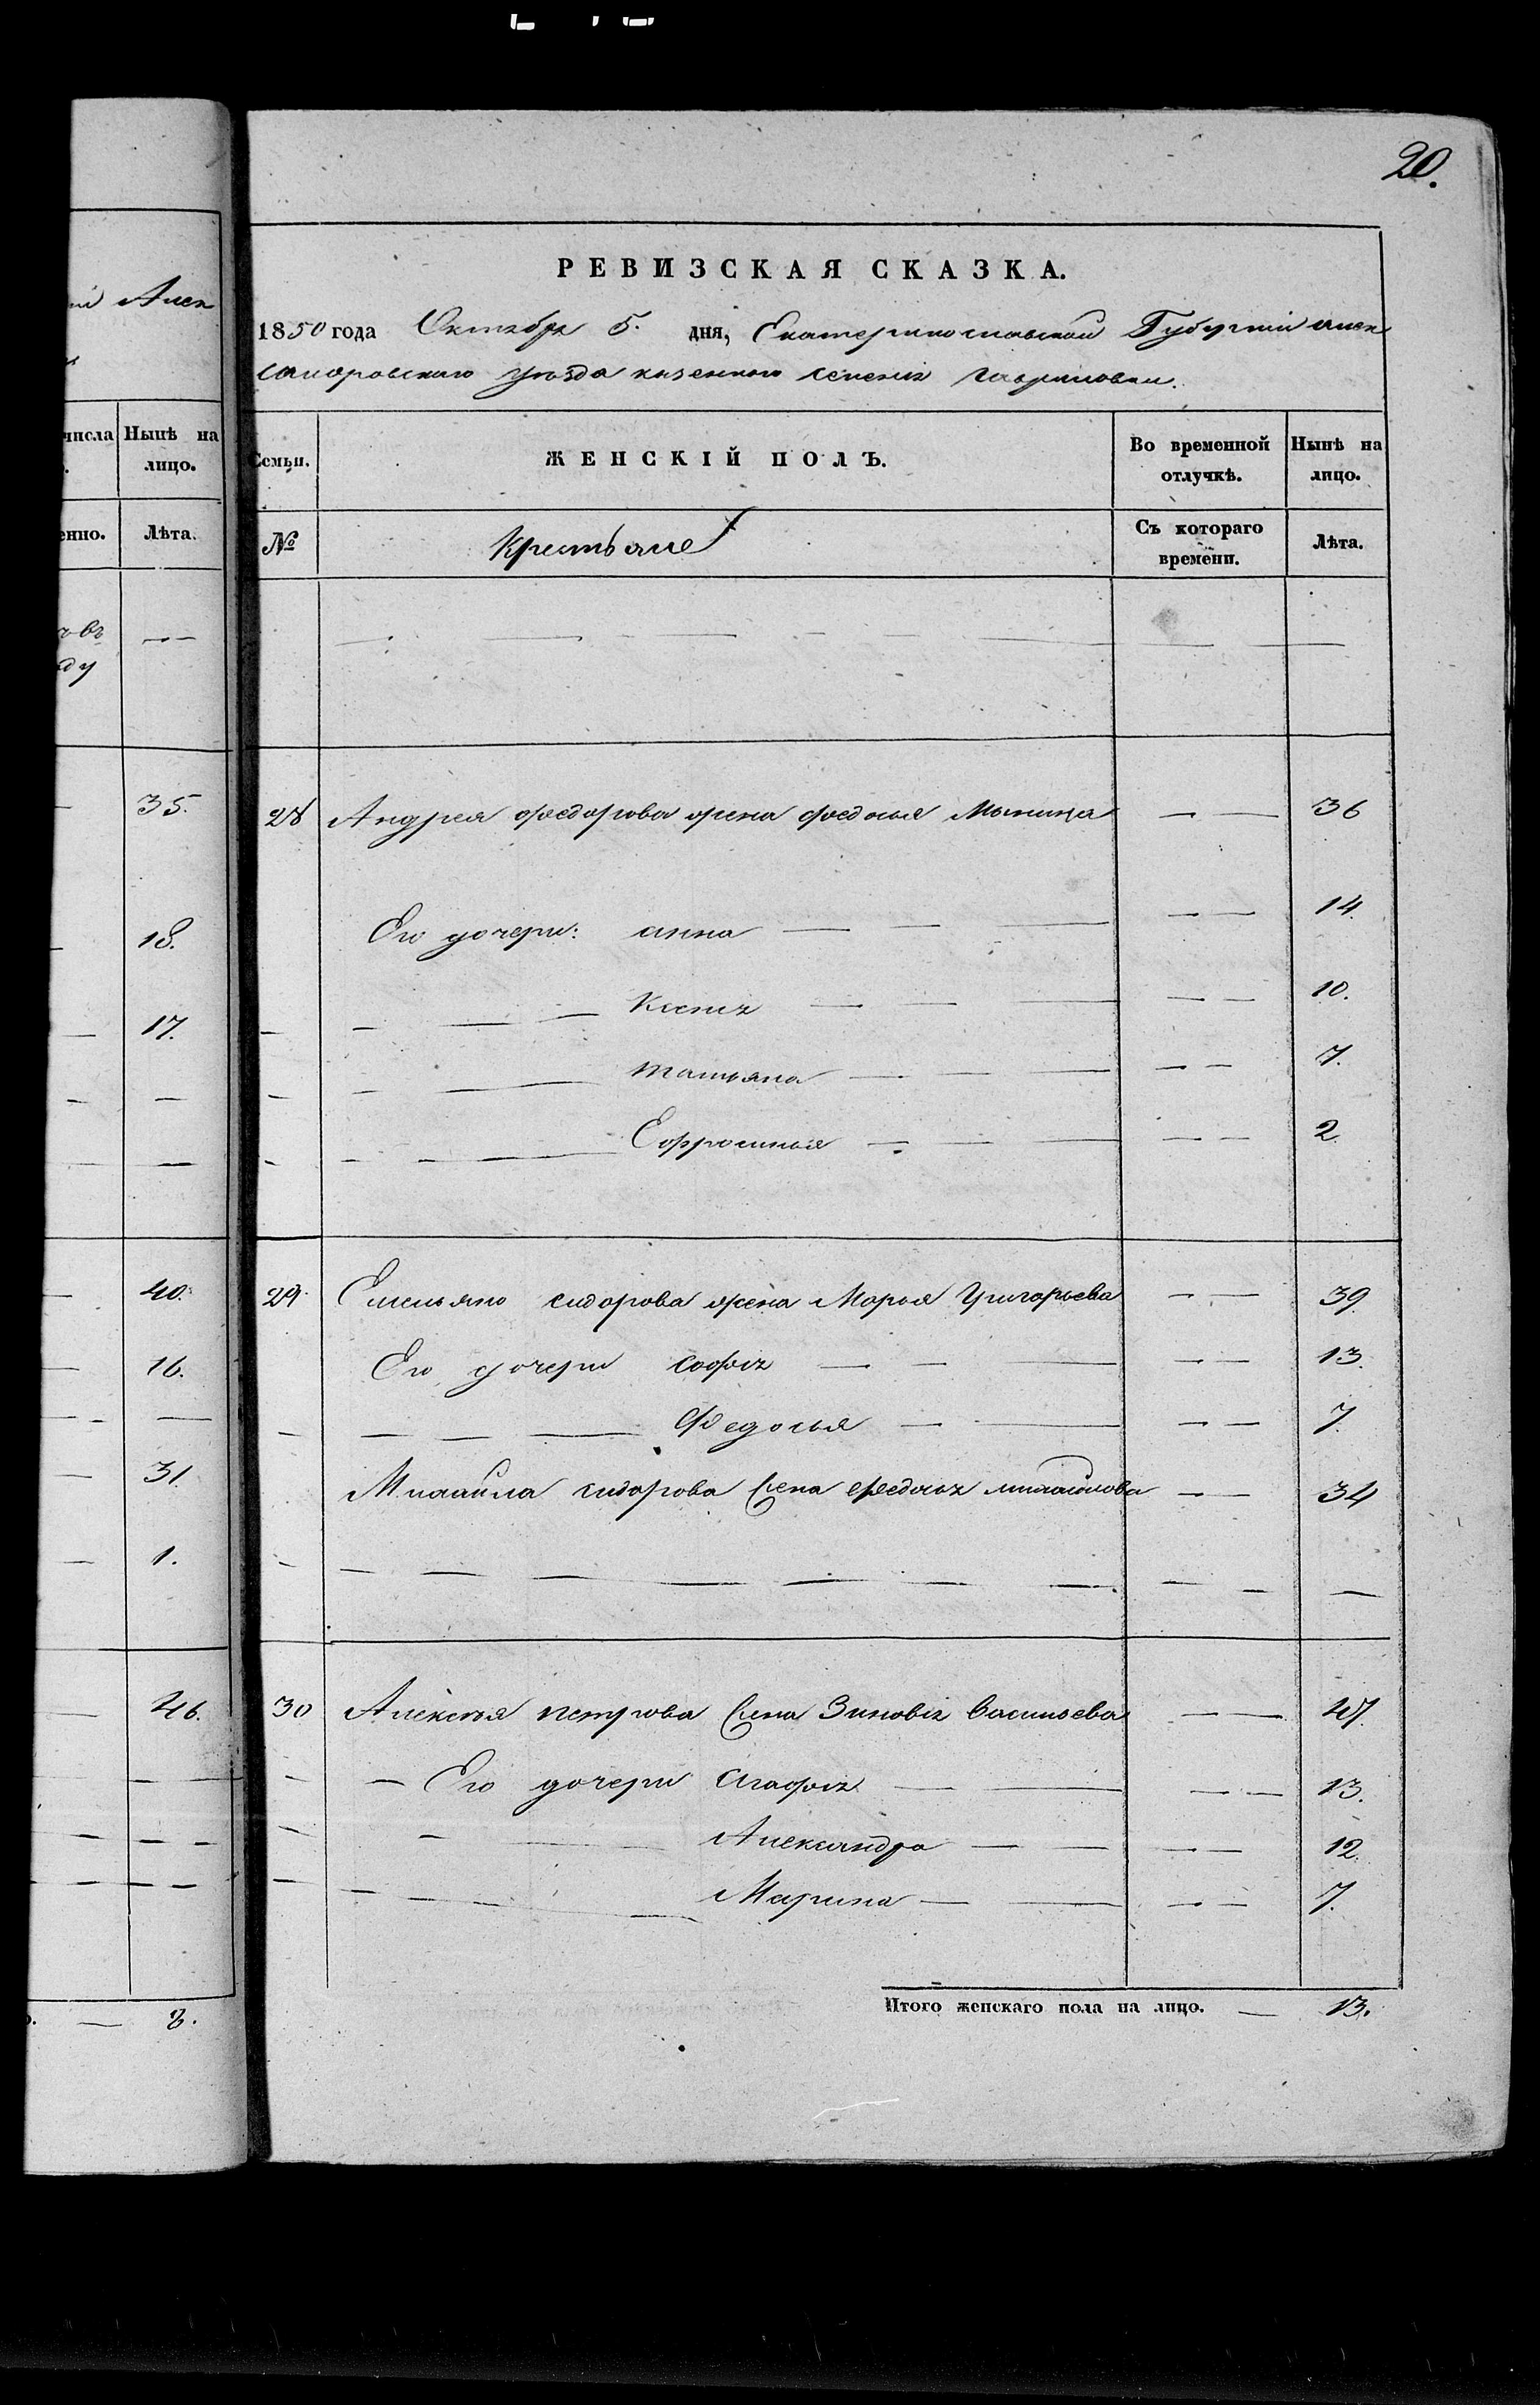 20.
Алек
числа Нынѣ на
лицо.
енно. Лѣта.
35.
18.
17.
40.
16.
31
1.
46.
8.
РЕВИЗСКАЯ СКАЗКА.
1850 года Октября 5. дня, Екатеринославской Губерніи алек
сандровскаго уѣзда казеннаго селенія гавриловки.
Семьи. ЖЕНСКІЙ ПОЛЪ. Во временной отлучкѣ. Нынѣ на лицо.
№ Крестьяне Съ котораго времени. Лѣта.
28 Андрея федорова жена федосья 36
Его дочери: анна 14
Ксенія 10.
татьяна 7.
Ефросинья 2
29 Емельяна сидорова жена Марья Григорьева 39
Его дочери софія 13.
Федосья 7.
Михаила сидорова жена федосья михайлова 34
30 Алексея петрова жена Зиновія Васильева 47.
Его дочери агафія 13.
Александра 12.
Марина 7.
Итого женскаго пола на лицо. 13.